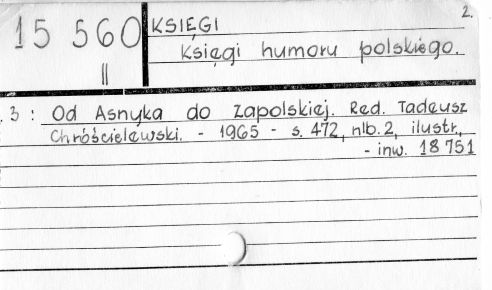 2.
15 560 KSIĘGI
II Księgi humoru polskiego.
3 : Od Asnyka do Zapolskiej. Red. Tadeusz
Chróścielewski. - 1965 - s. 472, nlb. 2, ilustr.,
- inw. 18 751